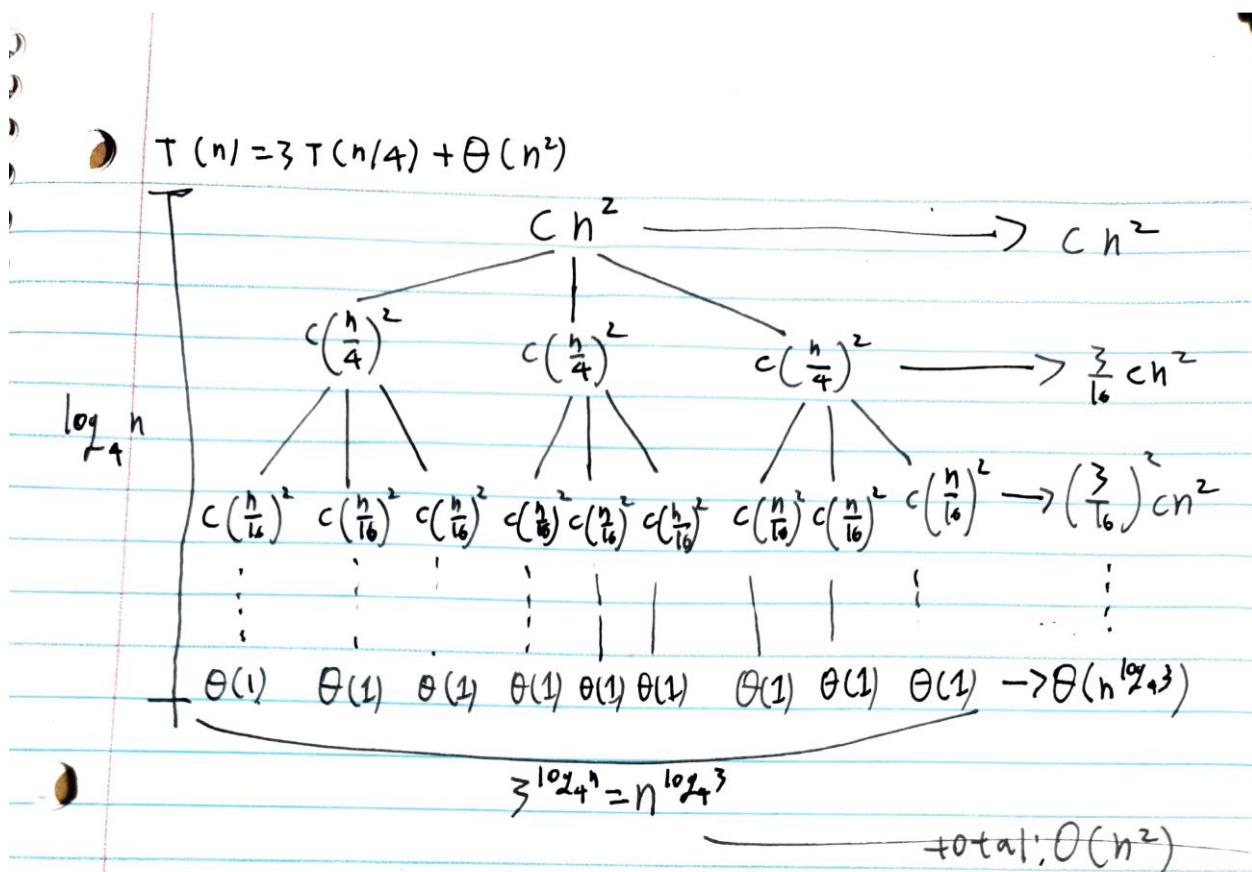 T(n)=3T(n/4)+Θ(n²)
cn² → cn²
c(n/4)² c(n/4)² c(n/4)² → 3/16 cn²
log₄n
c(n/16)² c(n/16)² c(n/16)² c(n/16)² c(n/16)² c(n/16)² c(n/16)² c(n/16)² c(n/16)² → (3/16)² cn²
θ(1) θ(1) θ(1) θ(1) θ(1) θ(1) θ(1) θ(1) θ(1) → θ(n^log₄3)
3^log₄n = n^log₄3
total: O(n²)